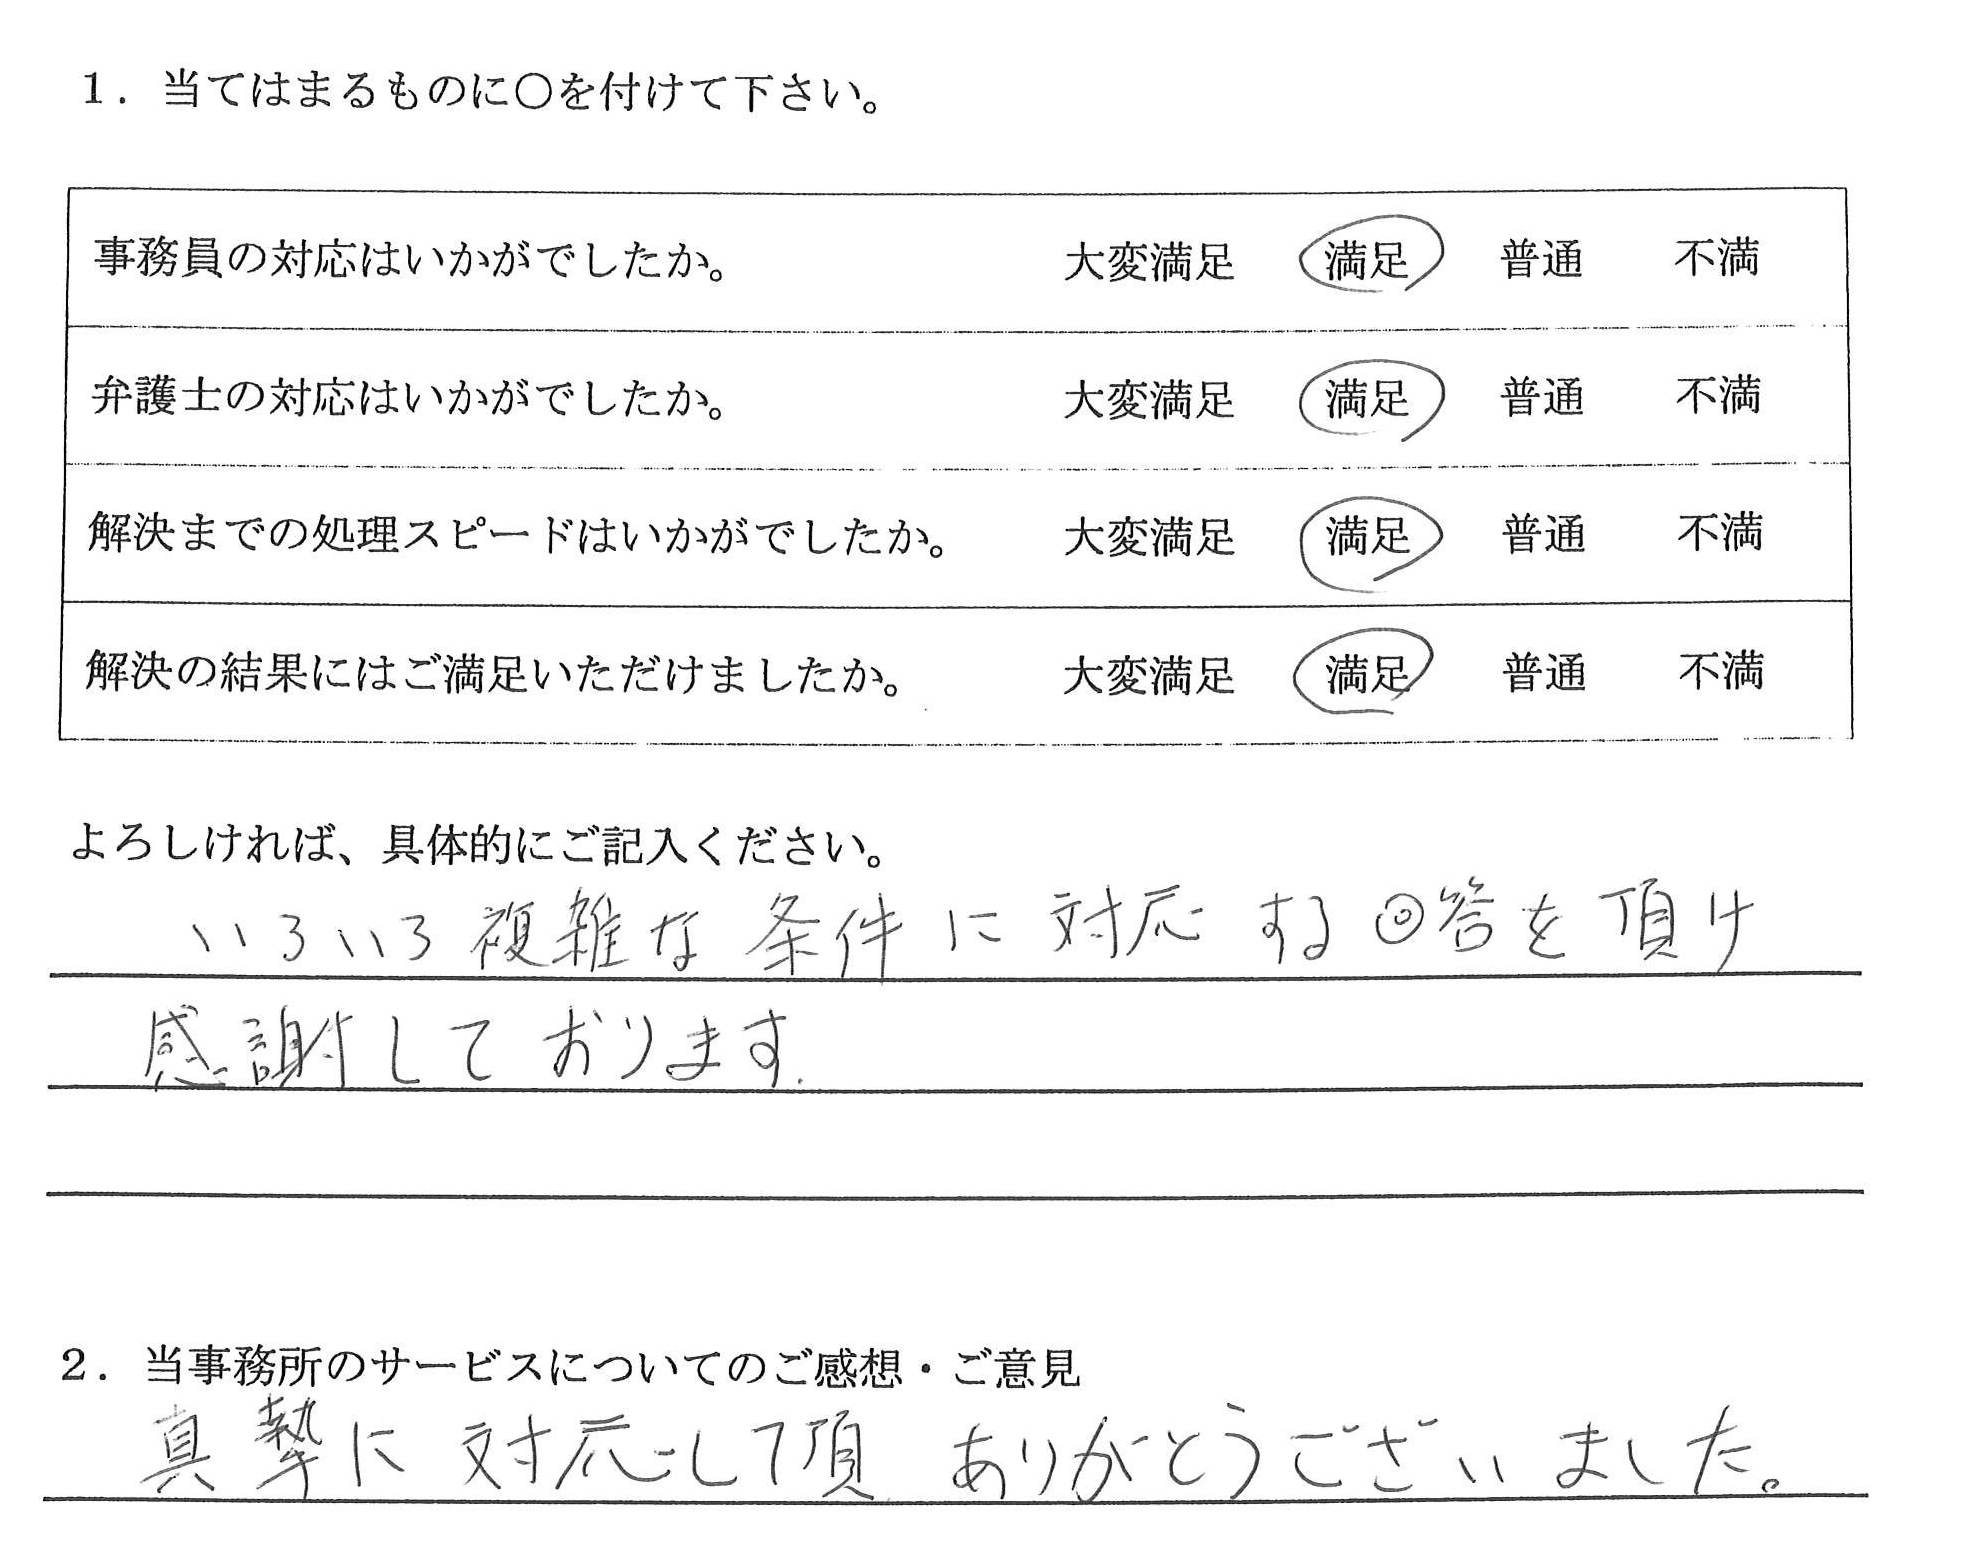 1．当てはまるものに〇を付けて下さい。
事務員の対応はいかがでしたか。 大変満足 満足 普通 不満
弁護士の対応はいかがでしたか。 大変満足 満足 普通 不満
解決までの処理スピードはいかがでしたか。 大変満足 満足 普通 不満
解決の結果にはご満足いただけましたか。 大変満足 満足 普通 不満
よろしければ、具体的にご記入ください。
いろいろ複雑な条件に対応する回答を頂け
感謝しております.
2．当事務所のサービスについてのご感想・ご意見
真摯に対応して頂 ありがとうございました。